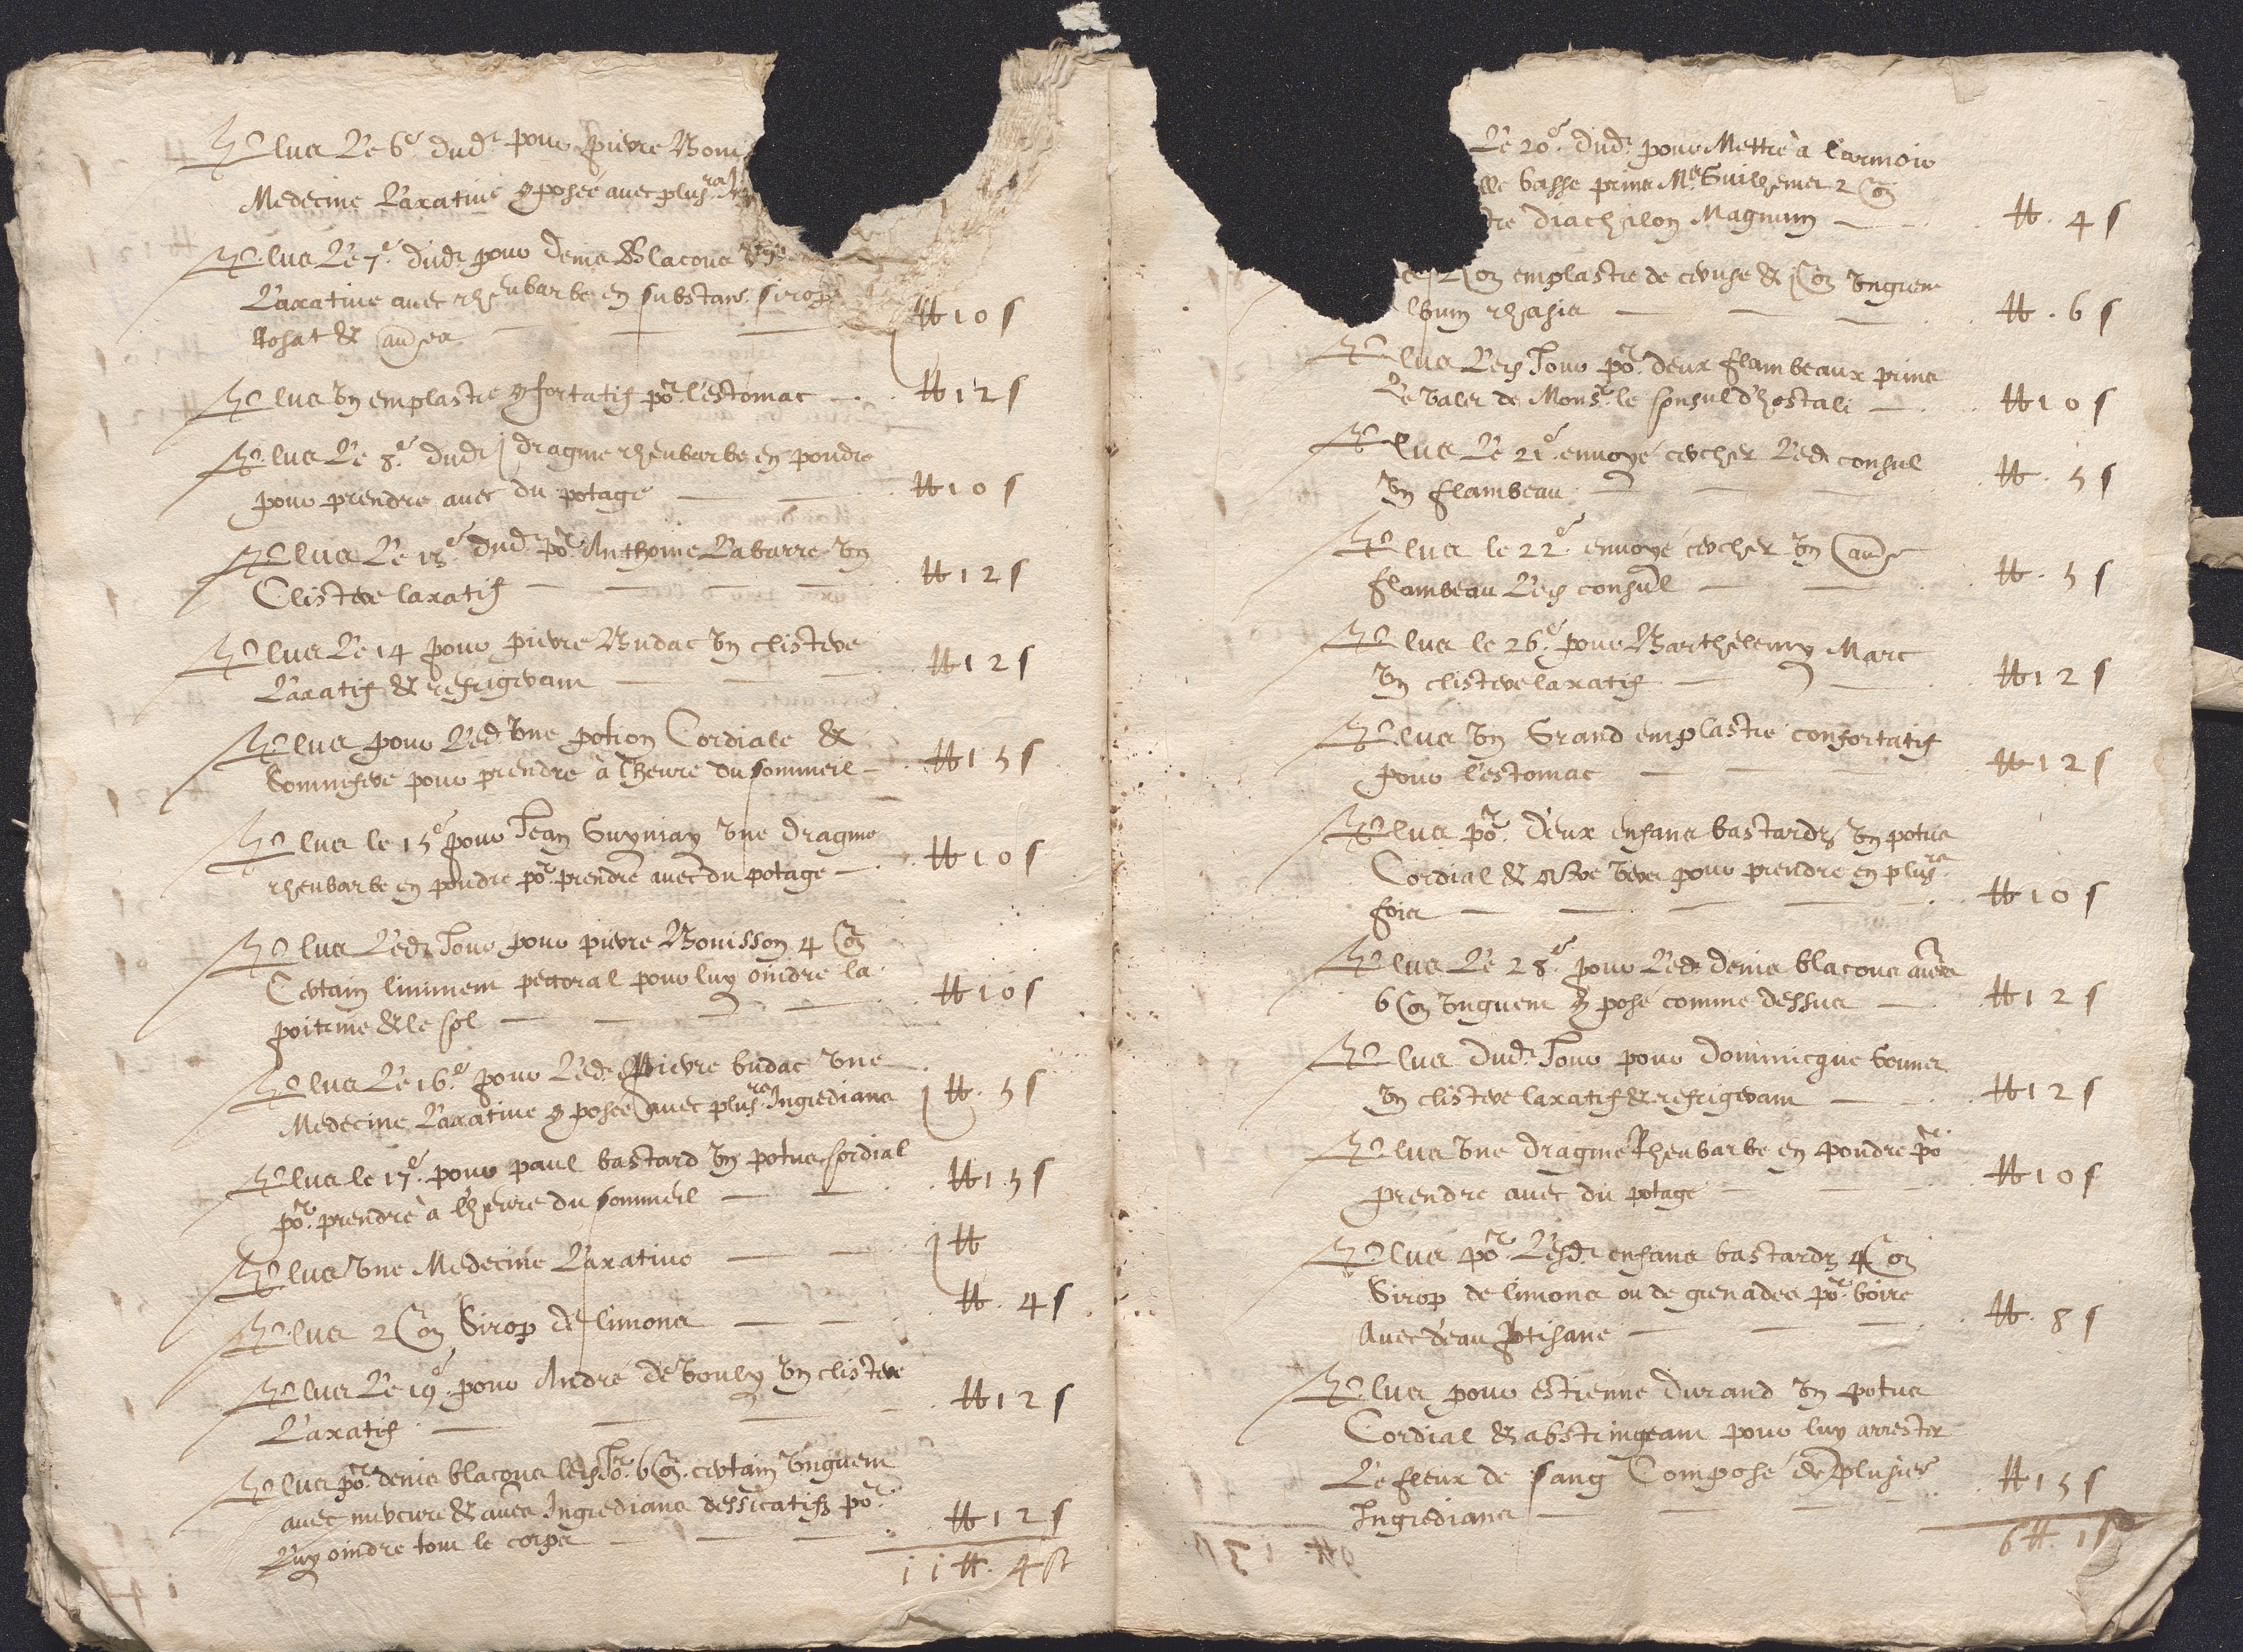 Plus Le 6e dud. pour pierre Boui
Medecine Laxative 9posée avec plusrs
Plus Le 7e dud. pour denis Blacons
Laxative avec rheubarbe en substan. sirop
Rosat & aues # 10 s
Plus Un emplastre 9fortatif por l'estomac # 12 s
Plus Le 8e dud. j dragme rheubarbe en poudre
pour prendre avec du potage # 10 s
Plus Le 13e dud. por Anthoine Labarre Un
Clistere laxatif # 12 s
Plus Le 14 pour pierre Budac Un clistere
Laxatif & refrigerant # 12 s
Plus pour Led. Une potion Cordiale &
Somnifere pour prendre à lheure du sommeil # 15 s
Plus le 15e pour Jean Guyniay Une dragme
rheubarbe en poudre por prendre avec du potage # 10 s
Plus Led. Jour pour pierre Bouisson 4
Certain liniment pectoral pour luy oindre la
poitrine & le col # 10 s
Plus Le 16e pour Led. pierre budac Une
Medecine Laxative 9posée avec plusrs Ingredians j # 5 s
Plus le 17e pour paul bastard Un potus Cordial
por prendre à lheure du sommeil # 15 s
Plus Une Medecine Laxative j #
Plus 2 Sirop de limons # 4 s
Plus Le 19e pour André de Bouly Un clistere
Laxatif # 12 s
Plus por denis blacons 6 certain Unguent
avec mercure & aues Ingredians dessicatifs por
Luy oindre tout le corps # 12 s
11 # 4 s
Le 20e dud. pour Mettre à l'armoire
lle basse prins Me Guilhemet 2
tre diachilon Magnum # 4 s
emplastre de ceruse & Unguent
lbum rhasis # 6 s
Plus Led. Jour por deux flambeaux prins
Le Valet de Monsr le Consul d'hostali # 10 s
Plus Le 21e envoyé cercher Led. consul
Un flambeau # 5 s
Plus le 22e envoyé cercher Un aue
flambeau Led. consul # 5 s
Plus le 26e pour Barthelemy Marc
Un clistere laxatif # 12 s
Plus Un Grand emplastre confortatif
pour l'estomac # 12 s
Plus por deux enfans bastards Un potus
Cordial & contre Vers pour prendre en plusrs
fois # 10 s
Plus Le 28e pour Led. denis blacons aues
6 Unguent 9posé comme dessus # 12 s
Plus Dud. Jour pour dominicque bonnet
Un clistere laxatif & refrigerant # 12 s
Plus Une dragme Rheubarbe en poudre por
prendre avec du potage # 10 s
Plus por Lesd. enfans bastards 4
Sirop de limons ou de grenades por boire
Avec d'eau ptisane # 8 s
Plus pour estienne durand Un potus
Cordial & abstringeant pour luy arrester
Le fleux de sang Composé de plusiers
Ingredians # 15 s
6 # 1 s